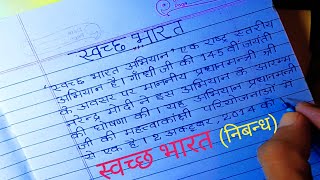 स्वच्छ भारत
"स्वच्छ भारत अभियान" एक राष्ट्र स्तरीय
अभियान है। गाँधी जी की 145वीं जयंती
के अवसर पर माननीय प्रधानमन्त्री श्री
नरेन्द्र मोदी ने इस अभियान के आरम्भ
की घोषणा की। यह अभियान प्रधानमन्त्री
जी की महत्वकांक्षी परियोजनाओं में
से एक है। 2 अक्टूबर 2014 को
स्वच्छ भारत (निबन्ध)